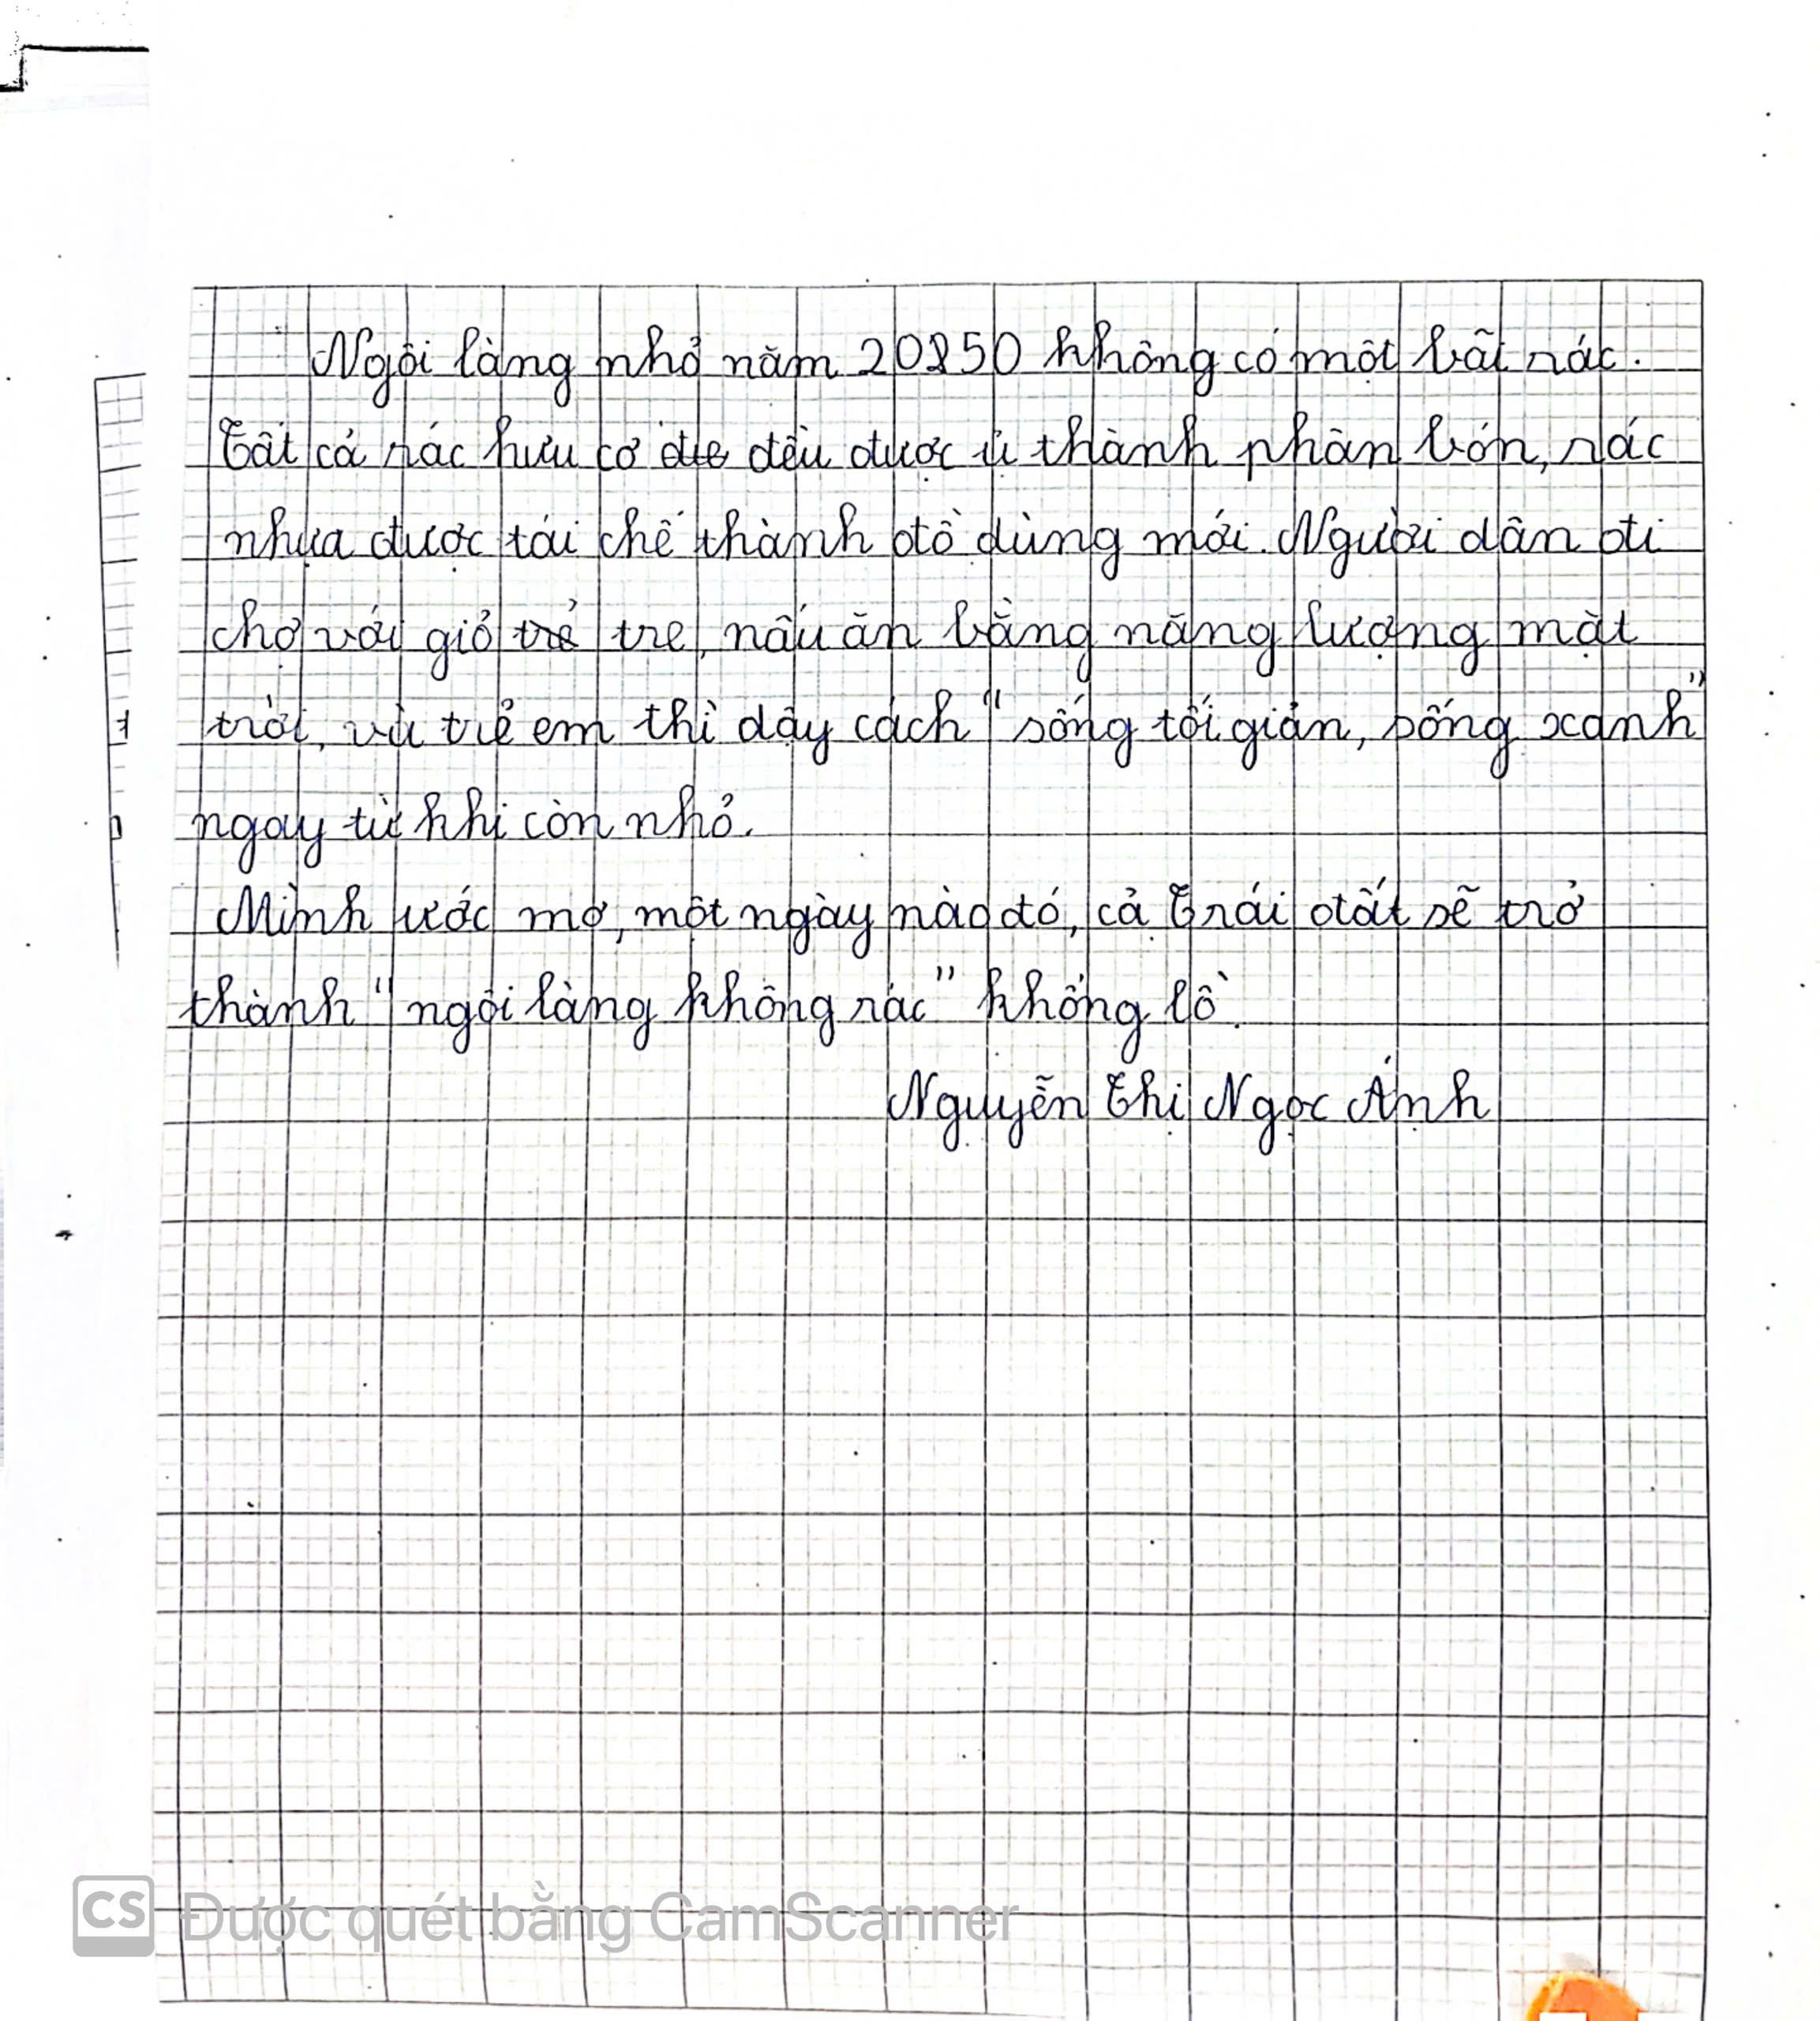 Ngôi làng nhỏ năm 20250 không có một bãi rác.
Tất cả rác hữu cơ đều được ủ thành phân bón, rác
nhựa được tái chế thành đồ dùng mới. Người dân đi
chợ với giỏ tre, nấu ăn bằng năng lượng mặt
trời, và trẻ em thì dậy cách "sống tối giản, sống xanh"
ngay từ khi còn nhỏ.
Mình ước mơ, một ngày nào đó, cả Trái đất sẽ trở
thành "ngôi làng không rác" khổng lồ.
Nguyễn Thị Ngọc Ánh
CS Được quét bằng CamScanner